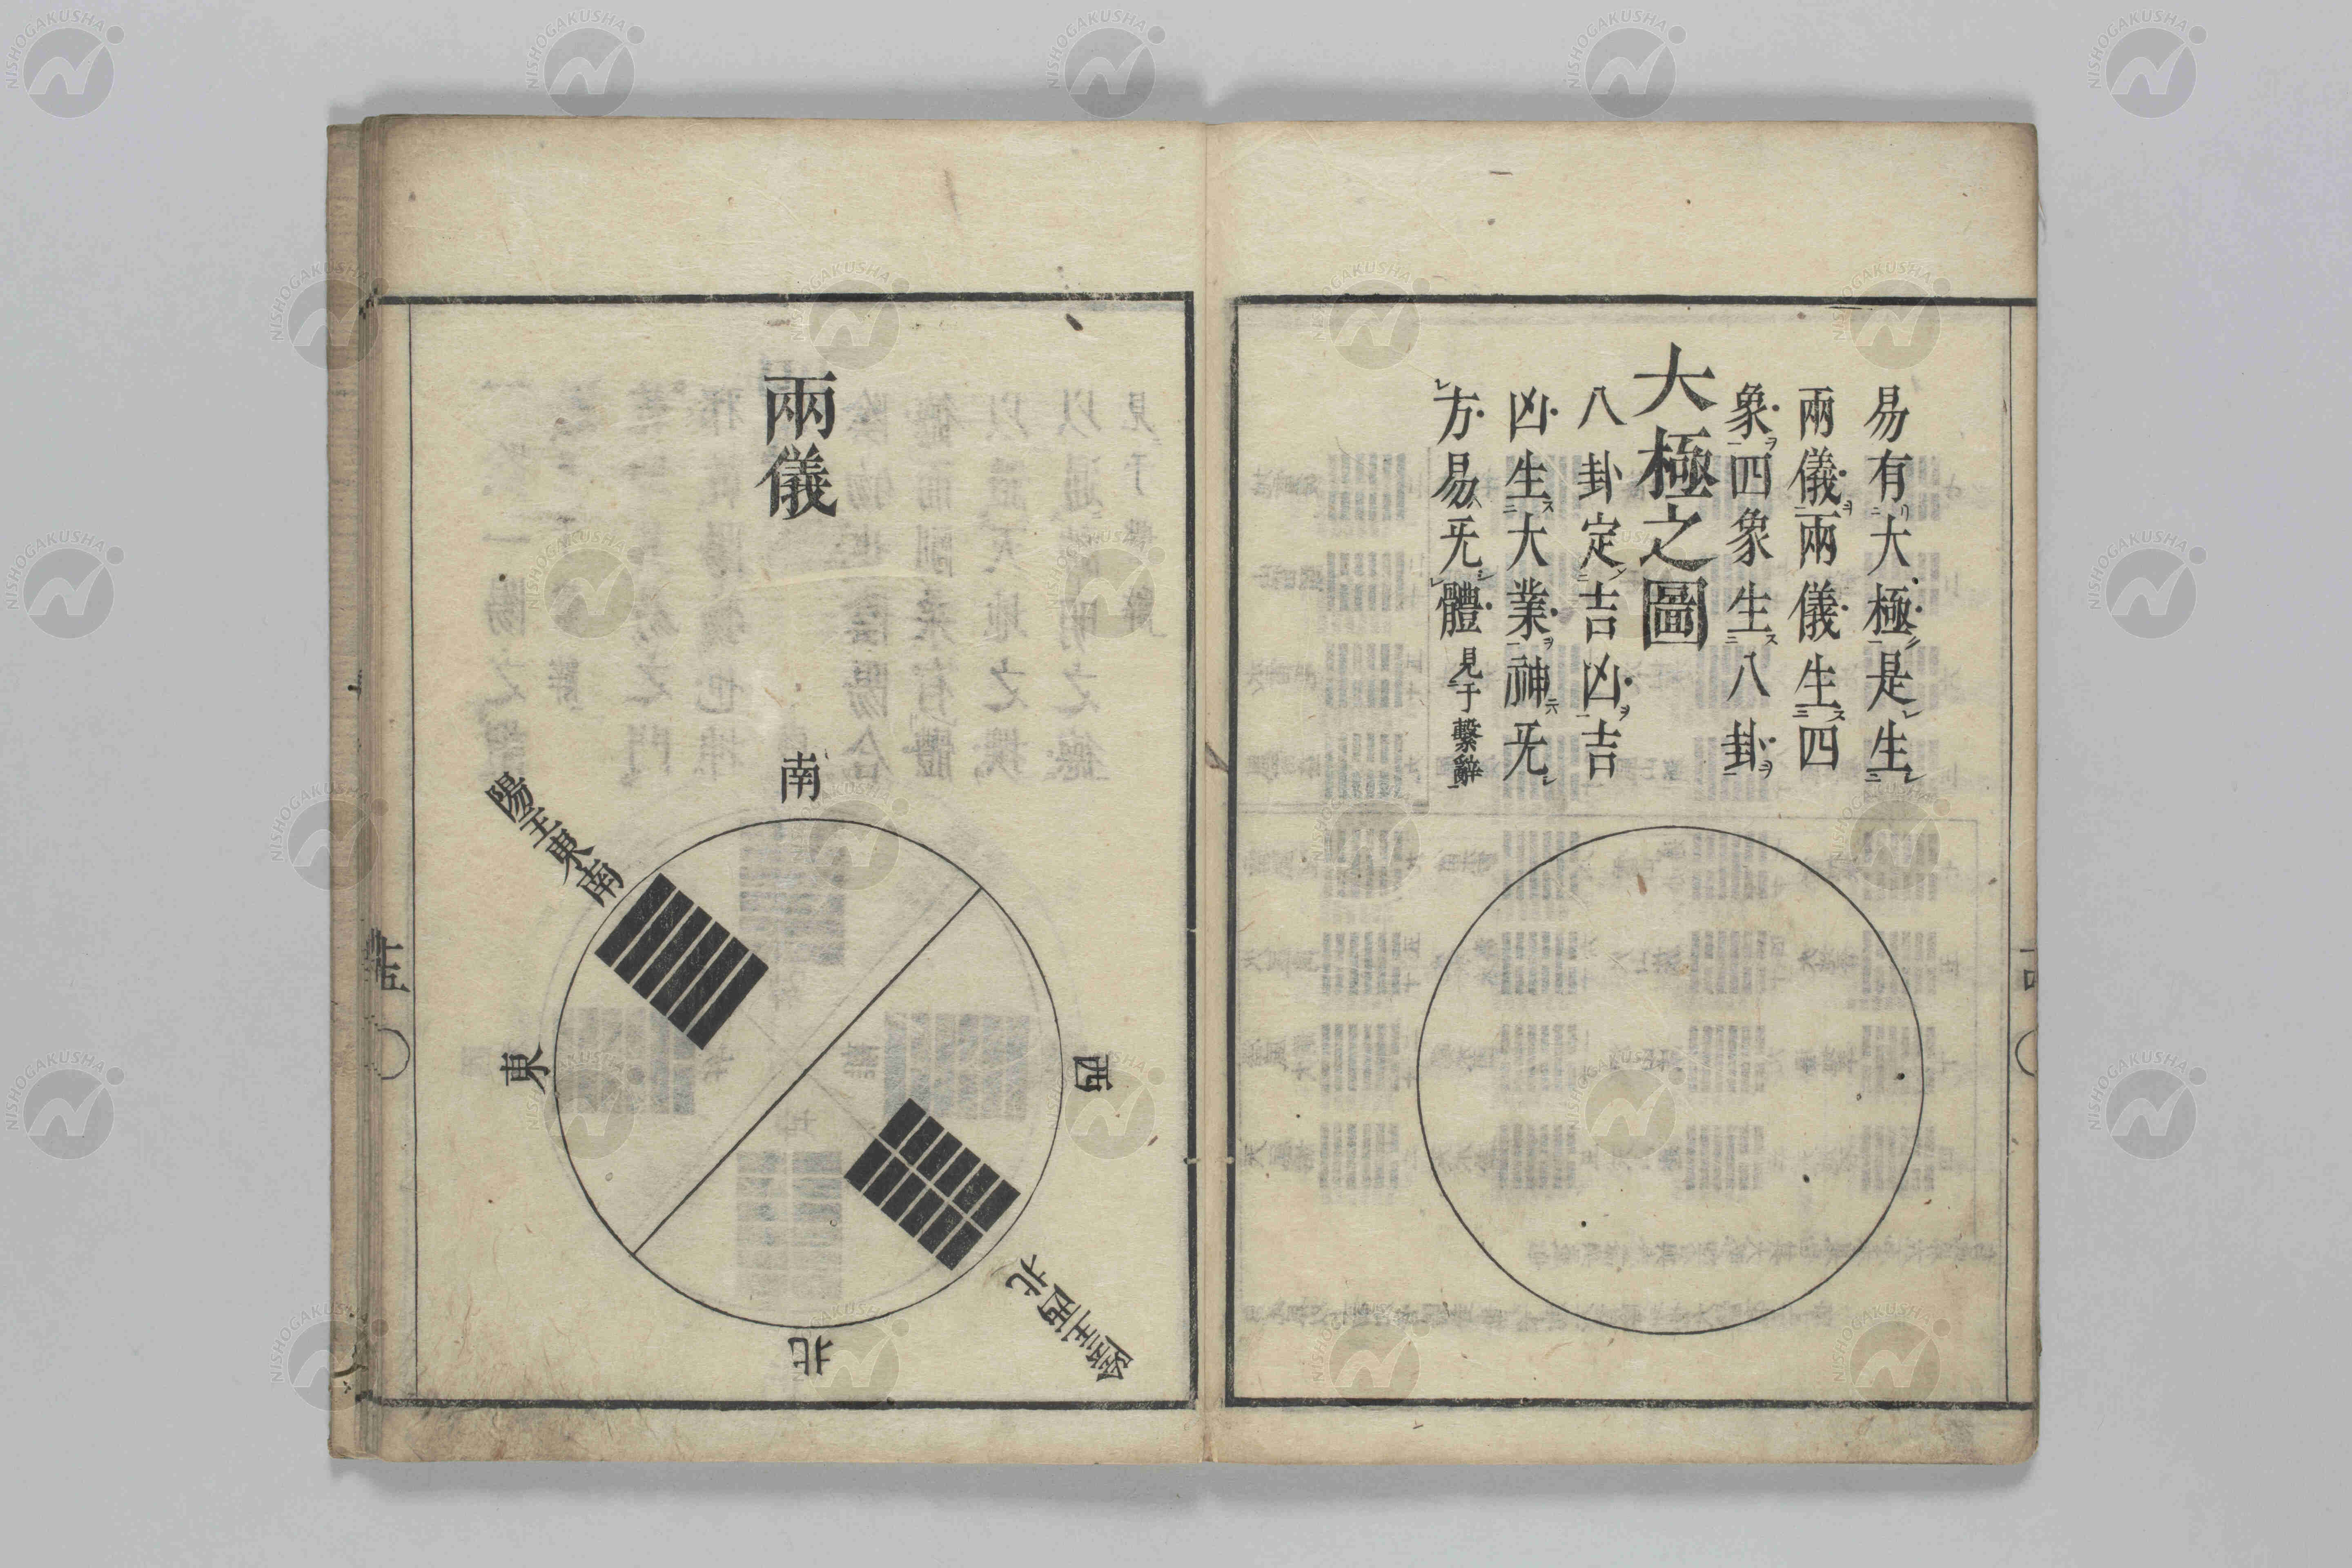 易有大極是生
兩儀兩儀生四
象四象生八卦
大極之圖
八卦定吉凶吉
凶生大業神旡
方易旡體見于繫辭
兩儀
南
陽主東南
東
西
北
陰主西北
NISHOGAKUSHA